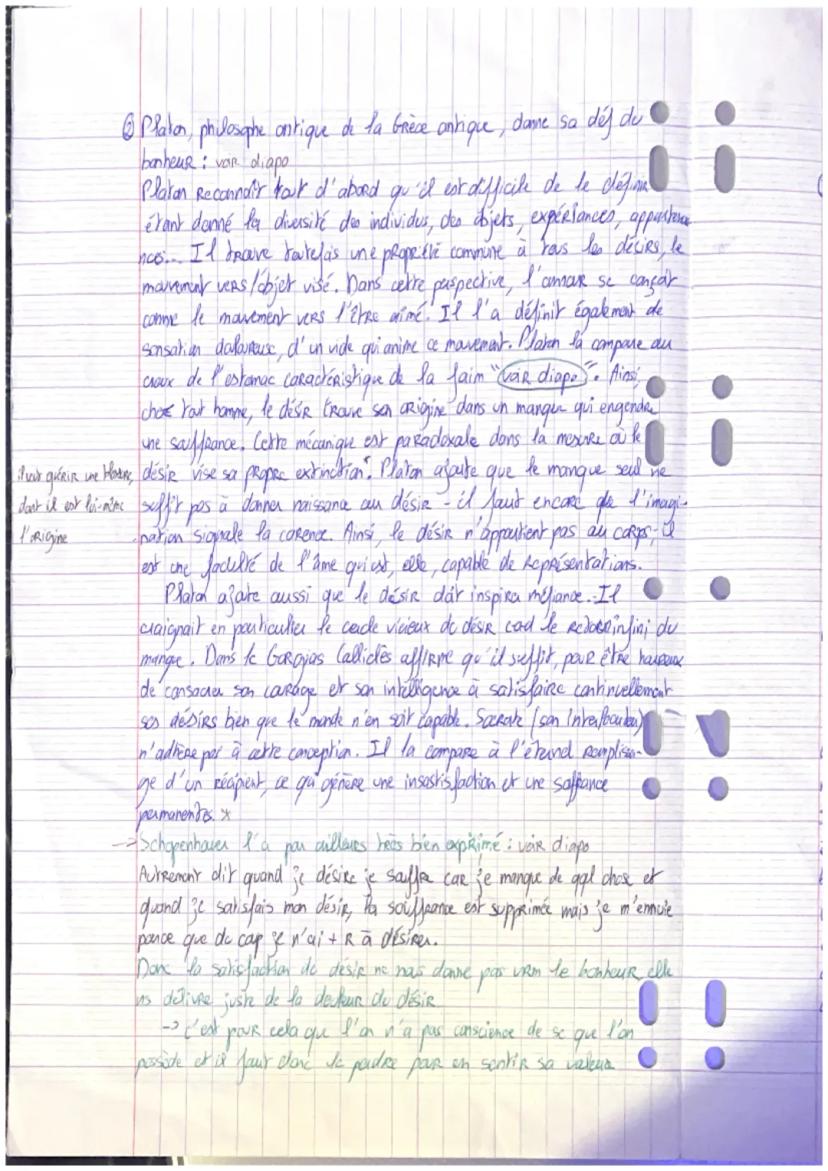 ② Platon, philosophe antique de la Grèce antique, donne sa déf du
bonheur : voir diapo
Platon Reconnaît tout d'abord qu'il est difficile de le définir
étant donné la diversité des individus, des objets, expériances, appartena
nces... Il trouve toutefois une propriété commune à tous les désirs, le
mouvement vers l'objet visé. Dans cette perspective, l'amour se conçoit
comme le mouvement vers l'être aimé. Il l'a définit également de
sensation douloureuse, d'un vide qui anime ce mouvement. Platon la compare au
creux de l'estomac caractéristique de la faim "voir diapo". Ainsi,
chez tout homme, le désir trouve son origine dans un manque qui engendre
une souffrance. Cette mécanique est paradoxale dans la mesure où le
désir vise sa propre extinction. Platon ajoute que le manque seul ne
il veut guérir une blessure,
dont il est lui-même
l'origine
suffit pas à donner naissance au désir - il faut encore que l'imagi-
nation signale la carence. Ainsi, le désir n'appartient pas au corps, il
est une faculté de l'âme qui est, elle, capable de représentations.
Platon ajoute aussi que le désir doit inspirer méfiance. Il
craignait en particulier le cercle vicieux du désir cad le retour infini du
manque. Dans le Gorgias Calliclès affirme qu'il suffit, pour être heureux
de consacrer son courage et son intelligence à satisfaire continuellement
ses désirs bien que le monde n'en soit capable. Socrate (son interlocuteur)
n'adhère pas à cette conception. Il la compare à l'éternel remplissa-
ge d'un récipient, ce qui génère une insatisfaction et une souffrance
permanentes. x
-> Schopenhauer l'a par ailleurs très bien exprimé : voir diapo
Autrement dit quand je désire je souffre car je manque de qql chose et
quand je satisfais mon désir, ma souffrance est supprimée mais je m'ennuie
parce que du cap je n'ai + R à désirer.
Donc la satisfaction du désir ne nous donne pas vrm le bonheur elle
ns délivre juste de la douleur du désir
-> c'est pour cela que l'on n'a pas conscience de se que l'on
possède et il faut donc le perdre pour en sentir sa valeur